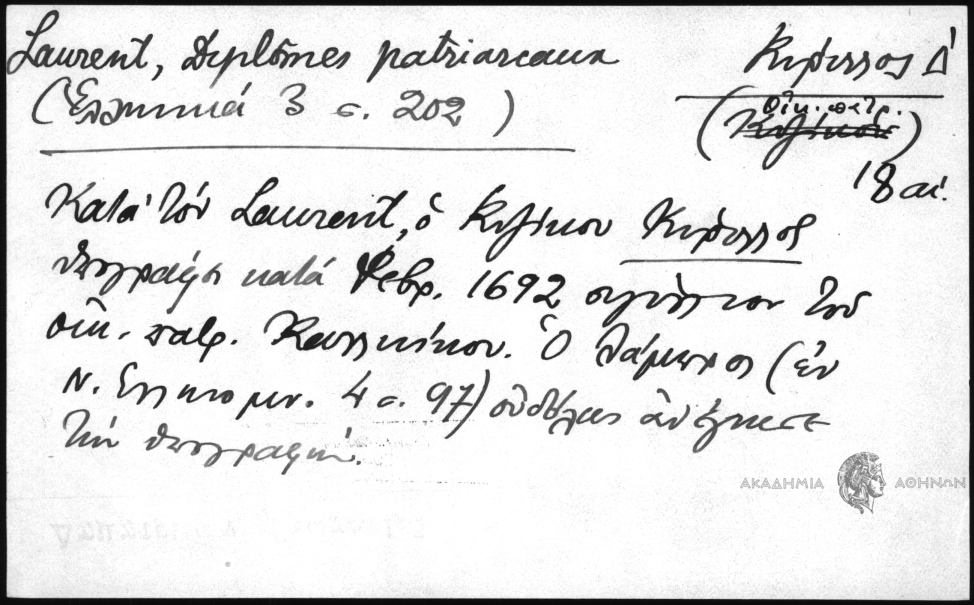 Laurent, Diplômes patriarcaux
(Ἑλληνικά 3 σ. 202)
Κύριλλος Δ΄
Οἰκ. πατρ.
(Κυζίκου)
18 αἰ.
Κατά τόν Laurent, ὁ Κυζίκου Κύριλλος
ὑπογράφει κατά Φεβρ. 1692 σιγίλλιον τοῦ
οἰκ. πατρ. Καλλινίκου. Ὁ Λάμπρος (ἐν
Ν. Ἑλληνομν. 4 σ. 97) οὐδόλως ἀνέγνωσε
τήν ὑπογραφήν.
ΑΚΑΔΗΜΙΑ ΑΘΗΝΩΝ